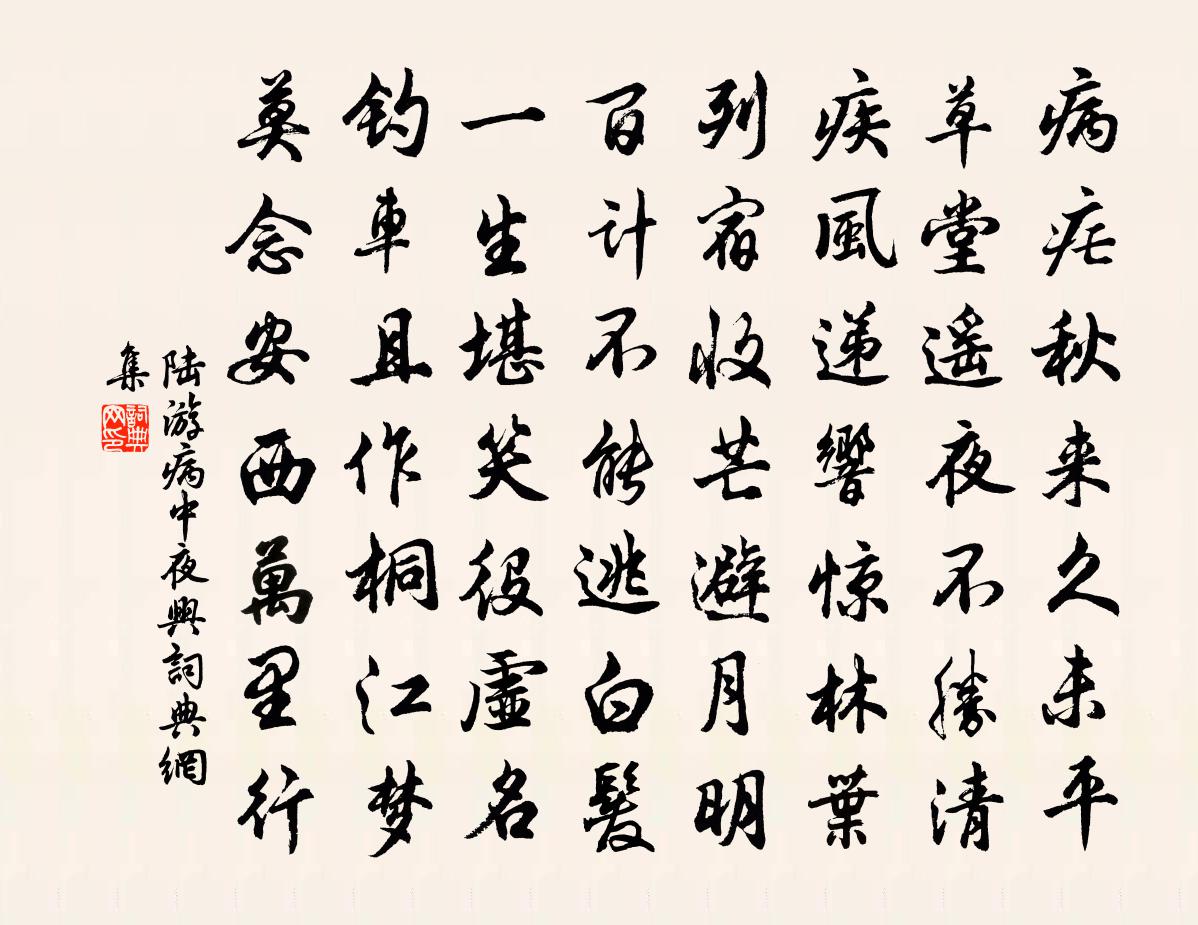 病疟秋来久未平
草堂遥夜不勝清
疾風递響惊林葉
列宿收芒避月明
百计不能逃白髮
一生堪笑役虚名
钓車且作桐江梦
莫念安西萬里行
陆游病中夜興詞典網
集
詞典网印